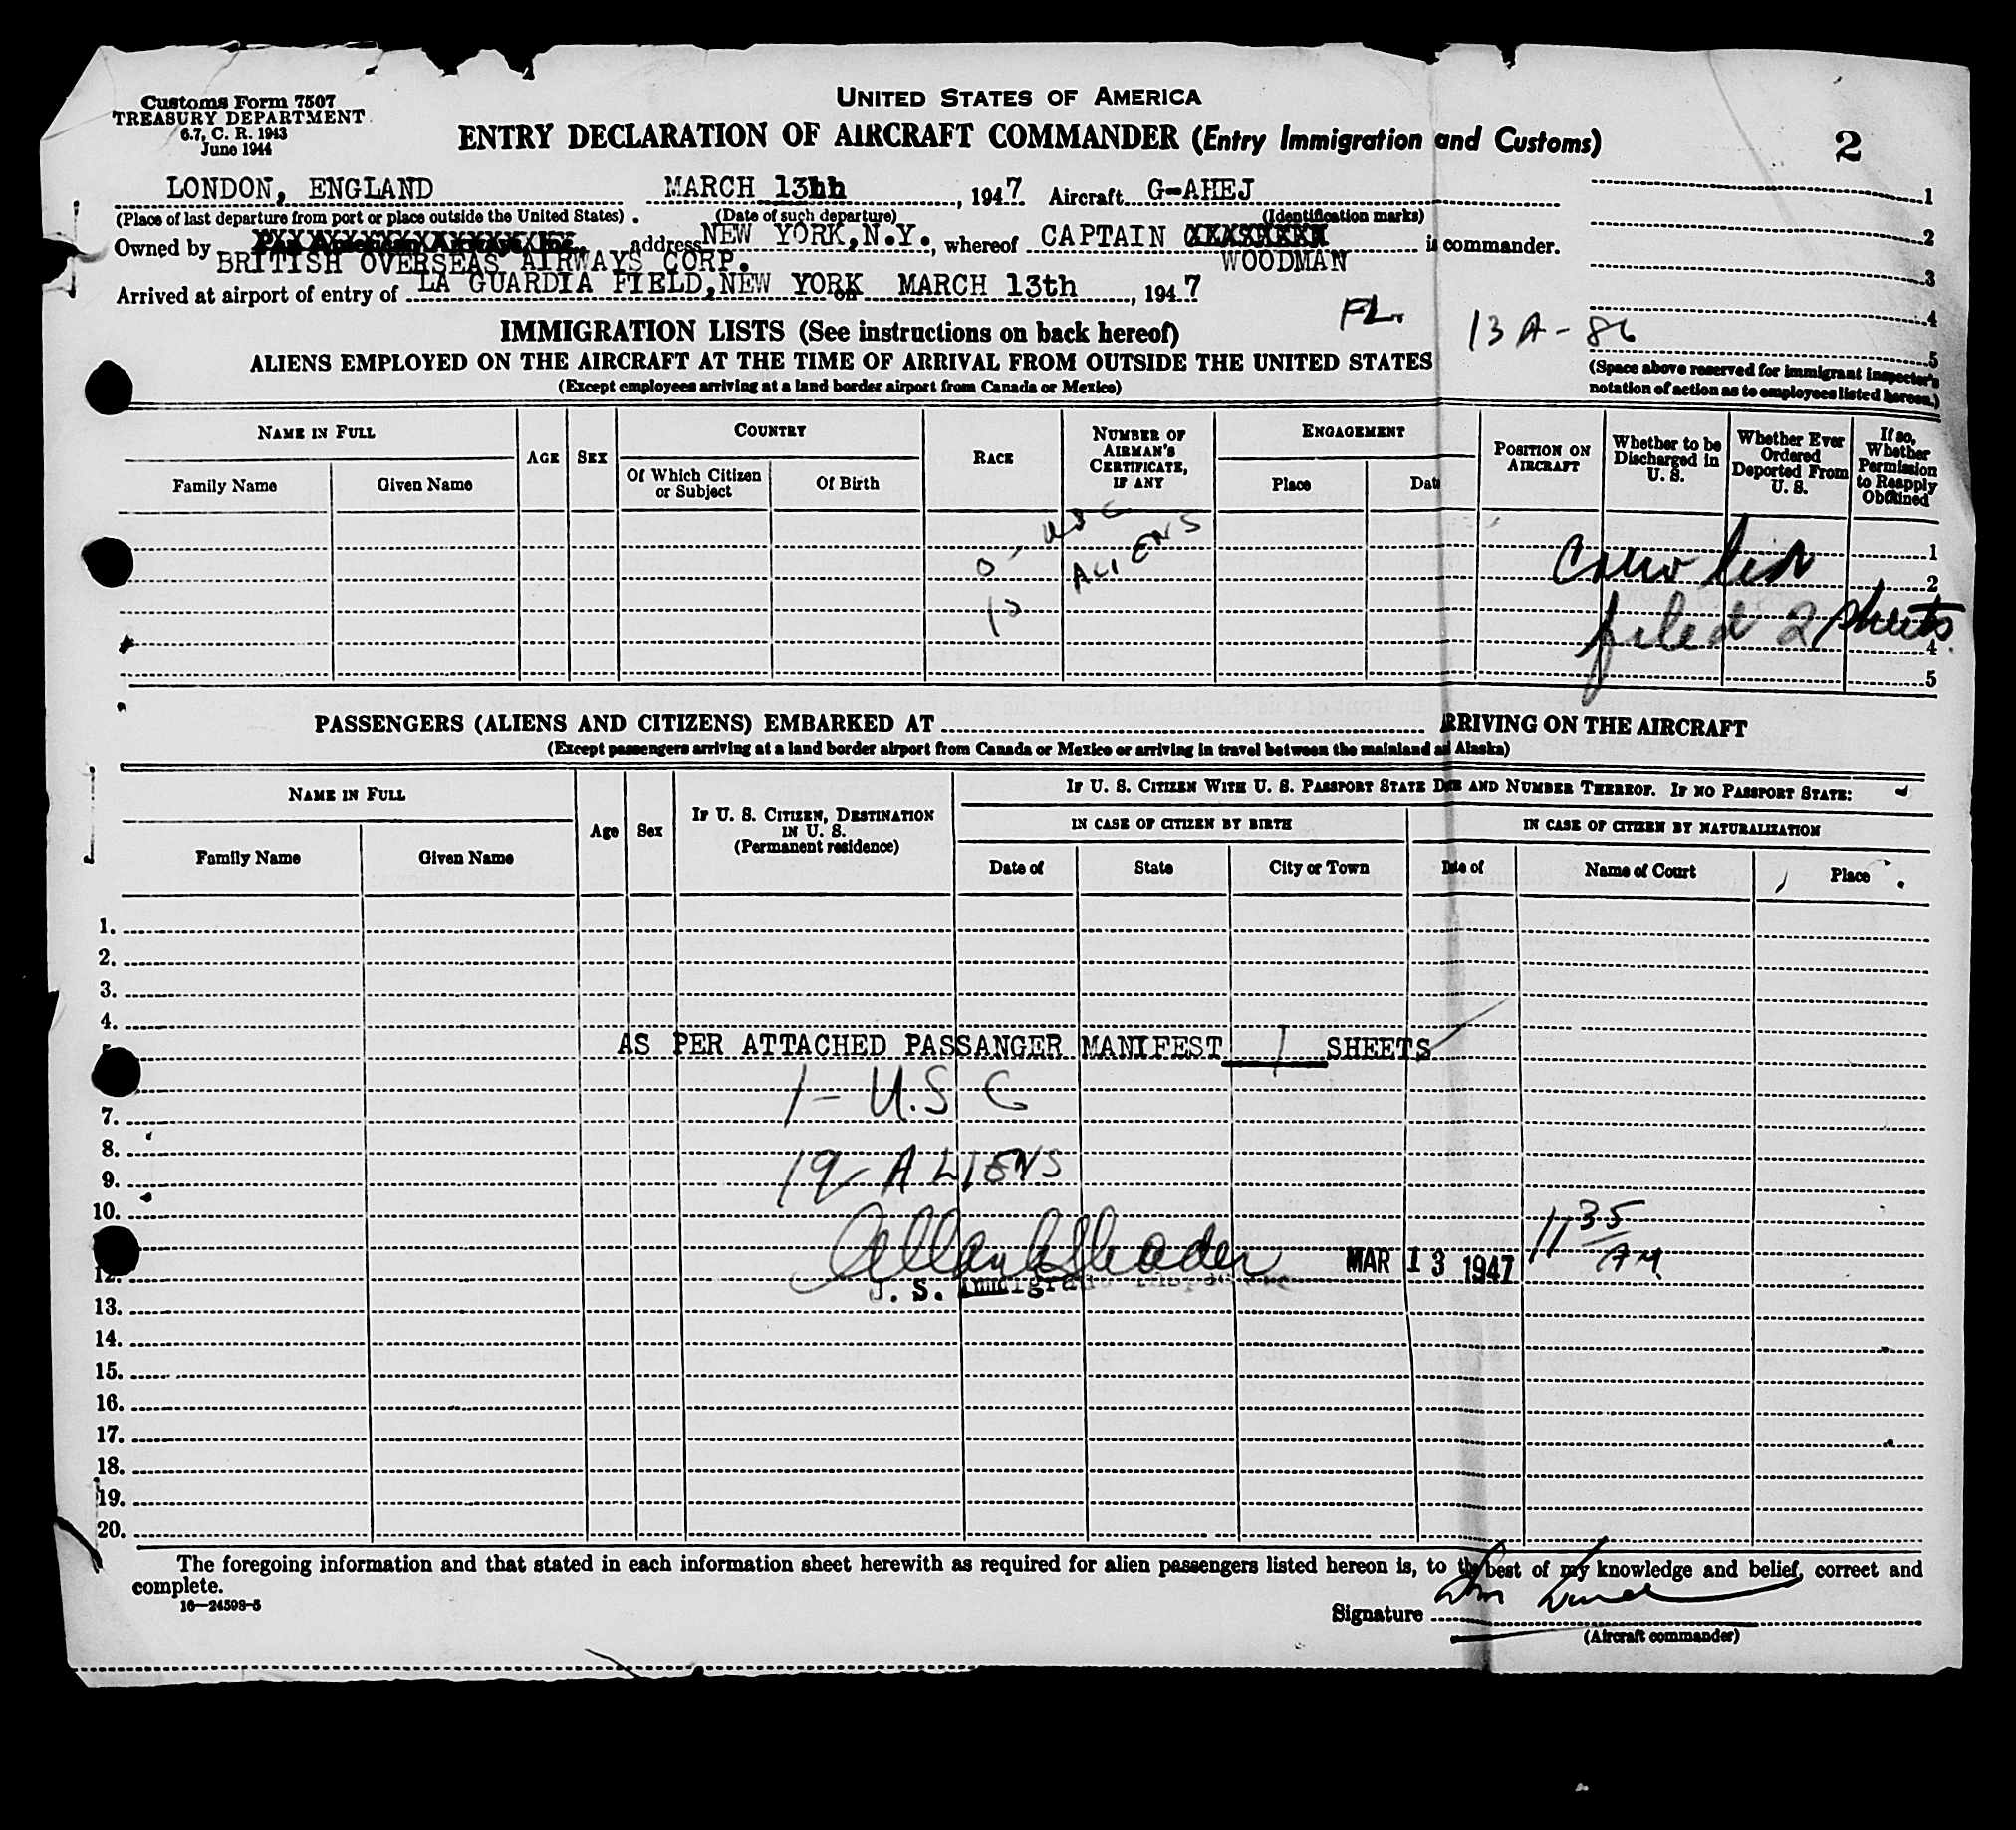 Customs Form 7507
TREASURY DEPARTMENT
6.7, C. R. 1943
June 1944
UNITED STATES OF AMERICA
ENTRY DECLARATION OF AIRCRAFT COMMANDER (Entry Immigration and Customs)
2
LONDON, ENGLAND MARCH 13 , 1947 Aircraft G-AHEJ
(Place of last departure from port or place outside the United States) . (Date of such departure) (Identification marks)
Owned by Pan American Airways Inc. address NEW YORK,N.Y. , whereof CAPTAIN is commander.
BRITISH OVERSEAS AIRWAYS CORP. WOODMAN
Arrived at airport of entry of LA GUARDIA FIELD,NEW YORK on MARCH 13th , 1947
1
2
3
4
5
FL. 13 A - 86
(Space above reserved for immigrant inspector's
notation of action as to employees listed hereon.)
IMMIGRATION LISTS (See instructions on back hereof)
ALIENS EMPLOYED ON THE AIRCRAFT AT THE TIME OF ARRIVAL FROM OUTSIDE THE UNITED STATES
(Except employees arriving at a land border airport from Canada or Mexico)
NAME IN FULL
Family Name Given Name
AGE SEX
COUNTRY
Of Which Citizen or Subject Of Birth
RACE
NUMBER OF AIRMAN'S CERTIFICATE, IF ANY
ENGAGEMENT
Place Date
POSITION ON AIRCRAFT
Whether to be Discharged in U. S.
Whether Ever Ordered Deported From U. S.
If so, Whether Permission to Reapply Obtained
0 - USC
10 ALIENS
Crew list
filed 2 sheets
1
2
4
5
PASSENGERS (ALIENS AND CITIZENS) EMBARKED AT ARRIVING ON THE AIRCRAFT
(Except passengers arriving at a land border airport from Canada or Mexico or arriving in travel between the mainland and Alaska)
NAME IN FULL
Family Name Given Name
Age Sex
IF U. S. CITIZEN, DESTINATION IN U. S. (Permanent residence)
IF U. S. CITIZEN WITH U. S. PASSPORT STATE DATE AND NUMBER THEREOF. IF NO PASSPORT STATE:
IN CASE OF CITIZEN BY BIRTH IN CASE OF CITIZEN BY NATURALIZATION
Date of State City or Town Date of Name of Court Place
1.
2.
3.
4.
AS PER ATTACHED PASSANGER MANIFEST 1 SHEETS
1 - U.S C
7.
8.
19 - ALIENS
9.
10.
11 35 AM
MAR 13 1947
12.
U. S. Immigrant Inspector
13.
14.
15.
16.
17.
18.
19.
20.
The foregoing information and that stated in each information sheet herewith as required for alien passengers listed hereon is, to the best of my knowledge and belief, correct and
complete.
16—24598-5
Signature
(Aircraft commander)